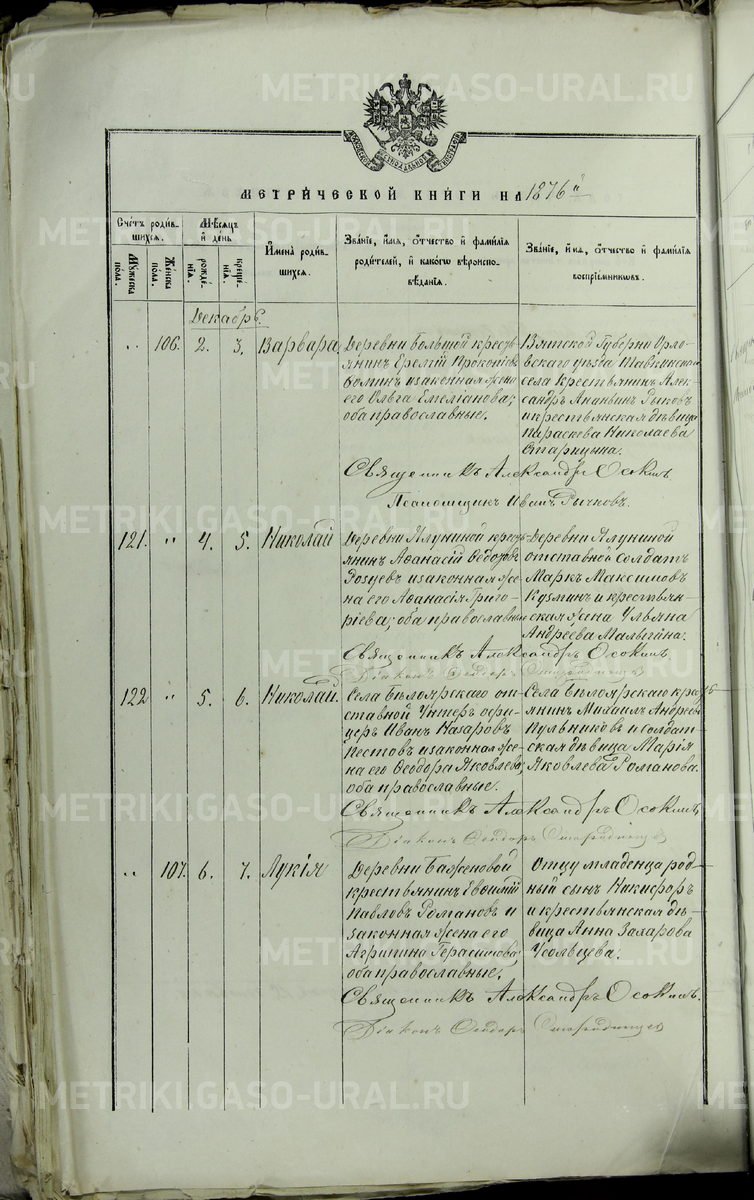 METRIKI.GASO-URAL.RU
МЕТРИЧЕСКОЙ КНИГИ НА 1876 й
Счетъ родив-
шихся.
Мѣсяцъ
и день
Имена родив-
шихся.
Званіе, имя, отчество и фамилія
родителей, и какого вѣроиспо-
вѣданія.
Званіе, имя, отчество и фамилія
воспріемниковъ.
Мужеска
пола.
Женска
пола.
рожде-
нія.
креще-
нія.
Декабрь.
" 106. 2. 3. Варвара
Деревни Большой кресть-
янинъ Еремій Прокопіевъ
Ѳоминъ и законная жена
его Ольга Емеліанова;
оба православные.
Вятской Губерніи Орло-
вскаго уѣзда
села Крестьянинъ Алек-
сандръ Ананьинъ Рыковъ
и крестьянская дѣвица
Параскева Николаева
Старицына.
Священникъ Александръ Осокинъ
Псаломщикъ Иванъ Рычковъ.
121. " 4. 5. Николай
Деревни Ялуниной кресть-
янинъ Аѳанасій Ѳедоровъ
и законная же-
на его Аѳанасія Григо-
ріева; оба православные
Деревни Ялуниной
отставной солдатъ
Маркъ Максимовъ
Кузминъ и крестьян-
ская жена Ульяна
Андреева Малыгина.
Священникъ Александръ Осокинъ
Діаконъ Ѳеодоръ
122 " 5. 6. Николай.
Села Бѣлоярскаго от-
ставной Унтеръ офи-
церъ Иванъ Назаровъ
Пестовъ и законная же-
на его Ѳеодора Яковлева;
оба православные.
Села Бѣлоярскаго кресть-
янинъ Михаилъ Андреевъ
Кульниковъ и солдат-
ская дѣвица Марія
Яковлева Романова.
Священникъ Александръ Осокинъ
Діаконъ Ѳеодоръ
" 107. 6. 7. Лукія
Деревни Баженовой
крестьянинъ Евѳимій
Павловъ Романовъ и
законная жена его
Агрипина Герасимова;
оба православные.
Отцу младенца род-
ный сынъ Никифоръ
и крестьянская дѣ-
вица Анна Захарова
Усольцева.
Священникъ Александръ Осокинъ.
Діаконъ Ѳеодоръ